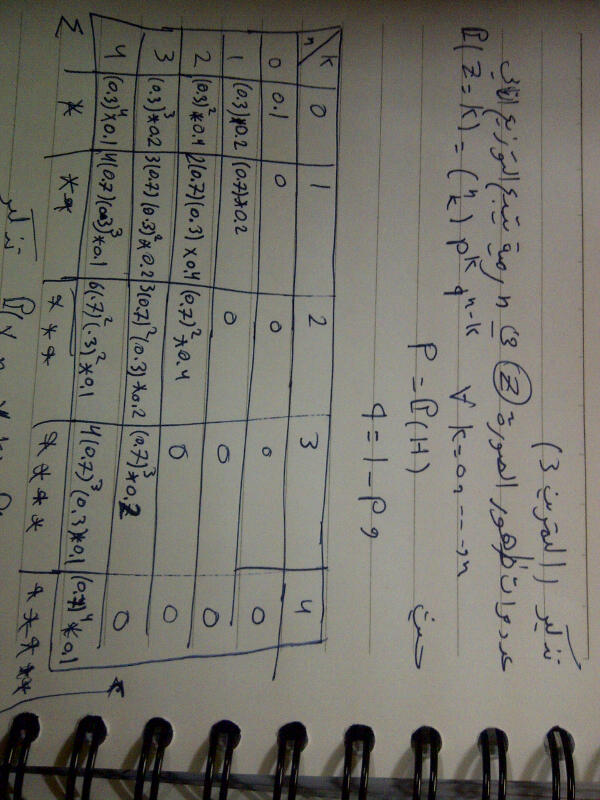 تذكير (التمرين 3)
عدد مرات ظهور الصورة Z في n رمية يتبع التوزيع الثنائي
P(Z = k) = (n k) p^k q^{n-k} ∀ k = 0, ---, n
حيث P = P(H)
q = 1 - p
n \ k 0 1 2 3 4
0 0.1 0 0 0 0
1 (0.3)*0.2 (0.7)*0.2 0 0 0
2 (0.3)^2*0.4 2(0.7)(0.3)*0.4 (0.7)^2*0.4 0 0
3 (0.3)^3*0.2 3(0.7)(0.3)^2*0.2 3(0.7)^2(0.3)*0.2 (0.7)^3*0.2 0
4 (0.3)^4*0.1 4(0.7)(0.3)^3*0.1 6(.7)^2(.3)^2*0.1 4(0.7)^3(0.3)*0.1 (0.7)^4*0.1
Σ * ** *** **** *****
تذكير